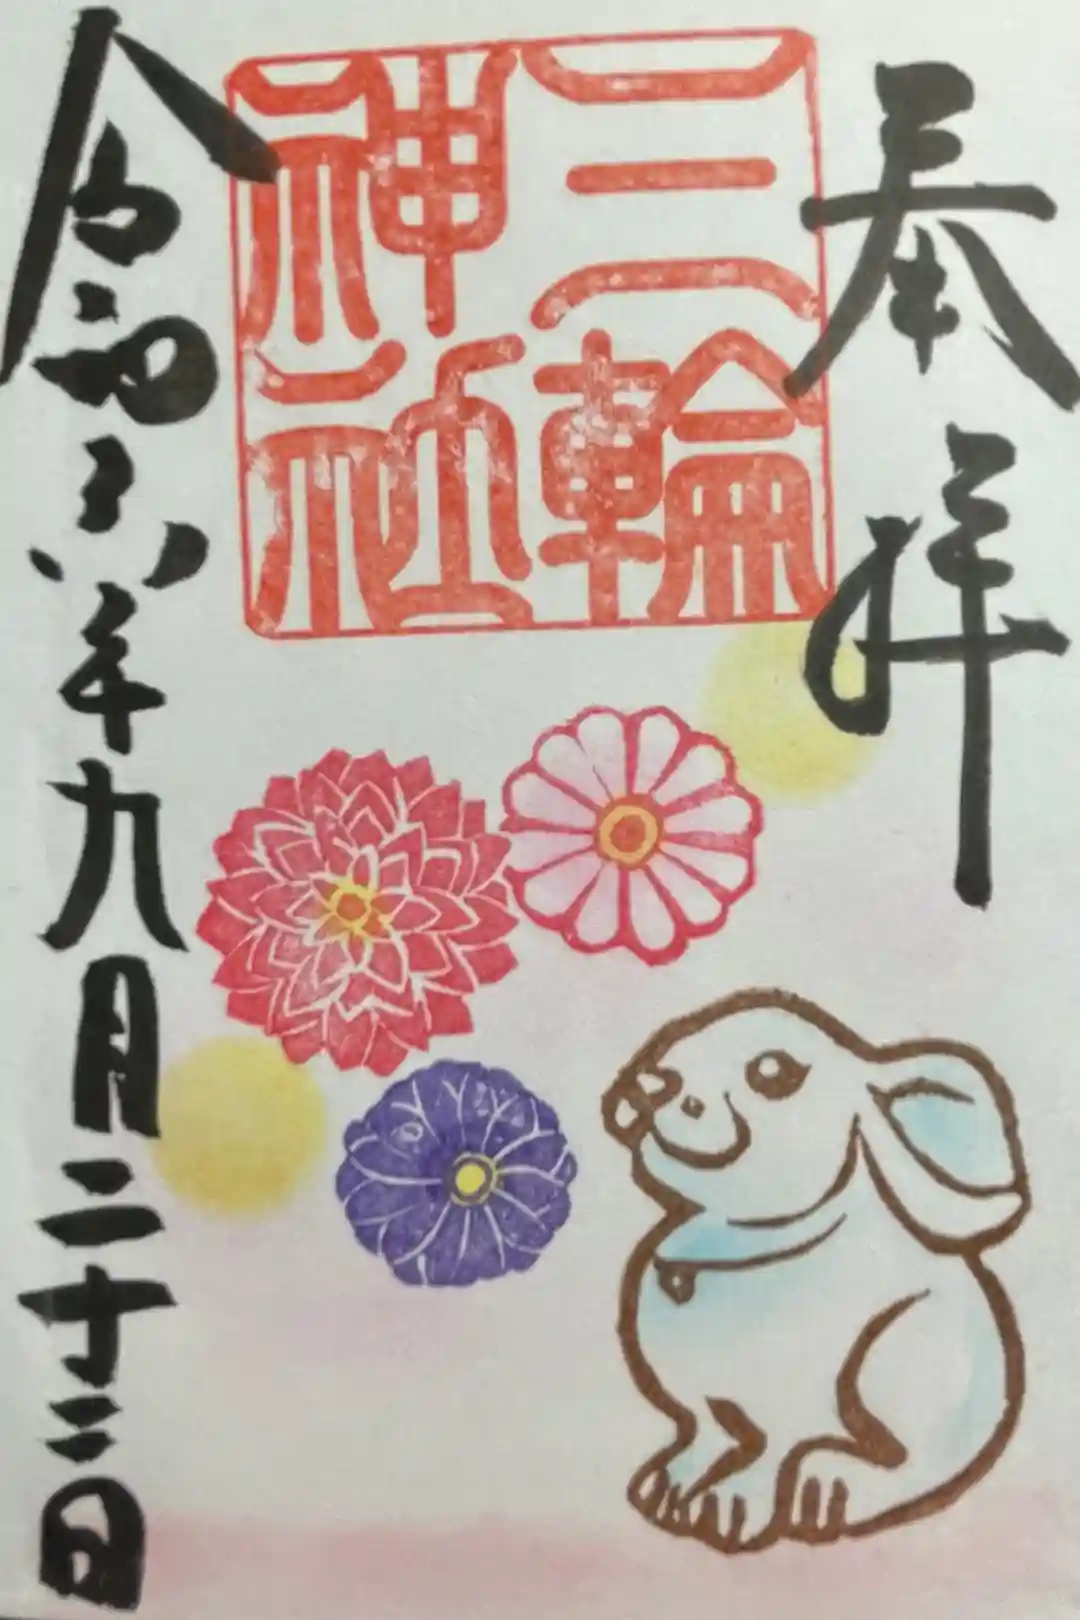 奉拝
三輪
神社
令和六年九月二十三日